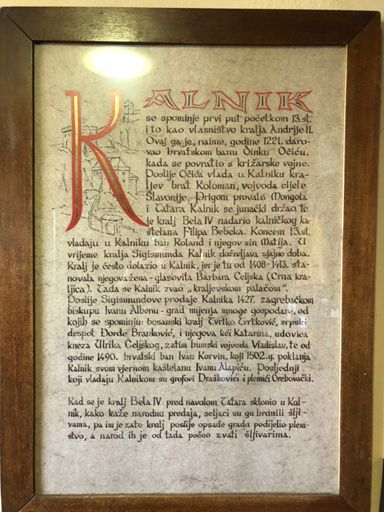 KALNIK
se spominje prvi put početkom 13.st.
i to kao vlasništvo kralja Andrije II.
Ovaj ga je, naime, godine 1221. daro-
vao hrvatskom banu Oinku Očiću,
kada se povratio s križarske vojne.
Poslije Očića vlada u Kalniku kra-
ljev brat Koloman, vojvoda cijele
Slavonije. Prigom provale Mongola
i Tatara Kalnik se junački držao, te
je kralj Bela IV nadario kalničkog ka-
štelana Filipa Bebeka. Koncem 13.st.
vladaju u Kalniku ban Roland i njegov sin Matija. U
vrijeme kralja Sigismunda Kalnik doživljava sjajno doba.
Kralj je često dolazio u Kalnik, jer je tu od 1408-1413. sta-
novala njegova žena - glasovita Barbara Celjska (Crna kra-
ljica). Tada se Kalnik zvao „kraljevskom palačom".
Poslije Sigismundove prodaje Kalnika 1427. zagrebačkom
biskupu Ivanu Albenu - grad mijenja mnoge gospodare, od
kojih se spominju bosanski kralj Tvrtko Tvrtković, srpski
despot Đorđe Branković, i njegova kći Katarina, udovica
kneza Ulrika Celjskog, zatim humski vojvoda Vladislav, te od
godine 1490. hrvatski ban Ivan Korvin, koji 1502.g. poklanja
Kalnik svom vjernom kaštelanu Ivanu Alapiću. Posljednji
koji vladaju Kalnikom su grofovi Draškovići i plemići Orehovački.
Kad se je kralj Bela IV pred navalom Tatara sklonio u Kal-
nik, kako kaže narodna predaja, seljaci su ga hranili šlji-
vama, pa im je zato kralj poslije opsade grada podijelio plem-
stvo, a narod ih je od tada počeo zvati šljivarima.